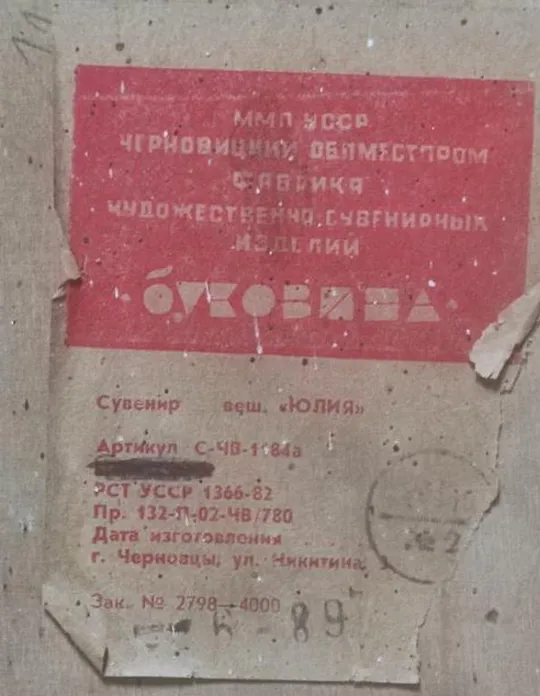 11
ММП УССР
ЧЕРНОВИЦКИЙ ОБЛМЕСТПРОМ
ФАБРИКА
ХУДОЖЕСТВЕННО-СУВЕНИРНЫХ
ИЗДЕЛИЙ
·БУКОВИНА·
Сувенир веш. «ЮЛИЯ»
Артикул С-ЧВ-1184а
РСТ УССР 1366-82
Пр. 132-П-02-ЧВ/780
Дата изготовления
г. Черновцы, ул. Никитина,
№ 2
Зак. № 2798—4000
89